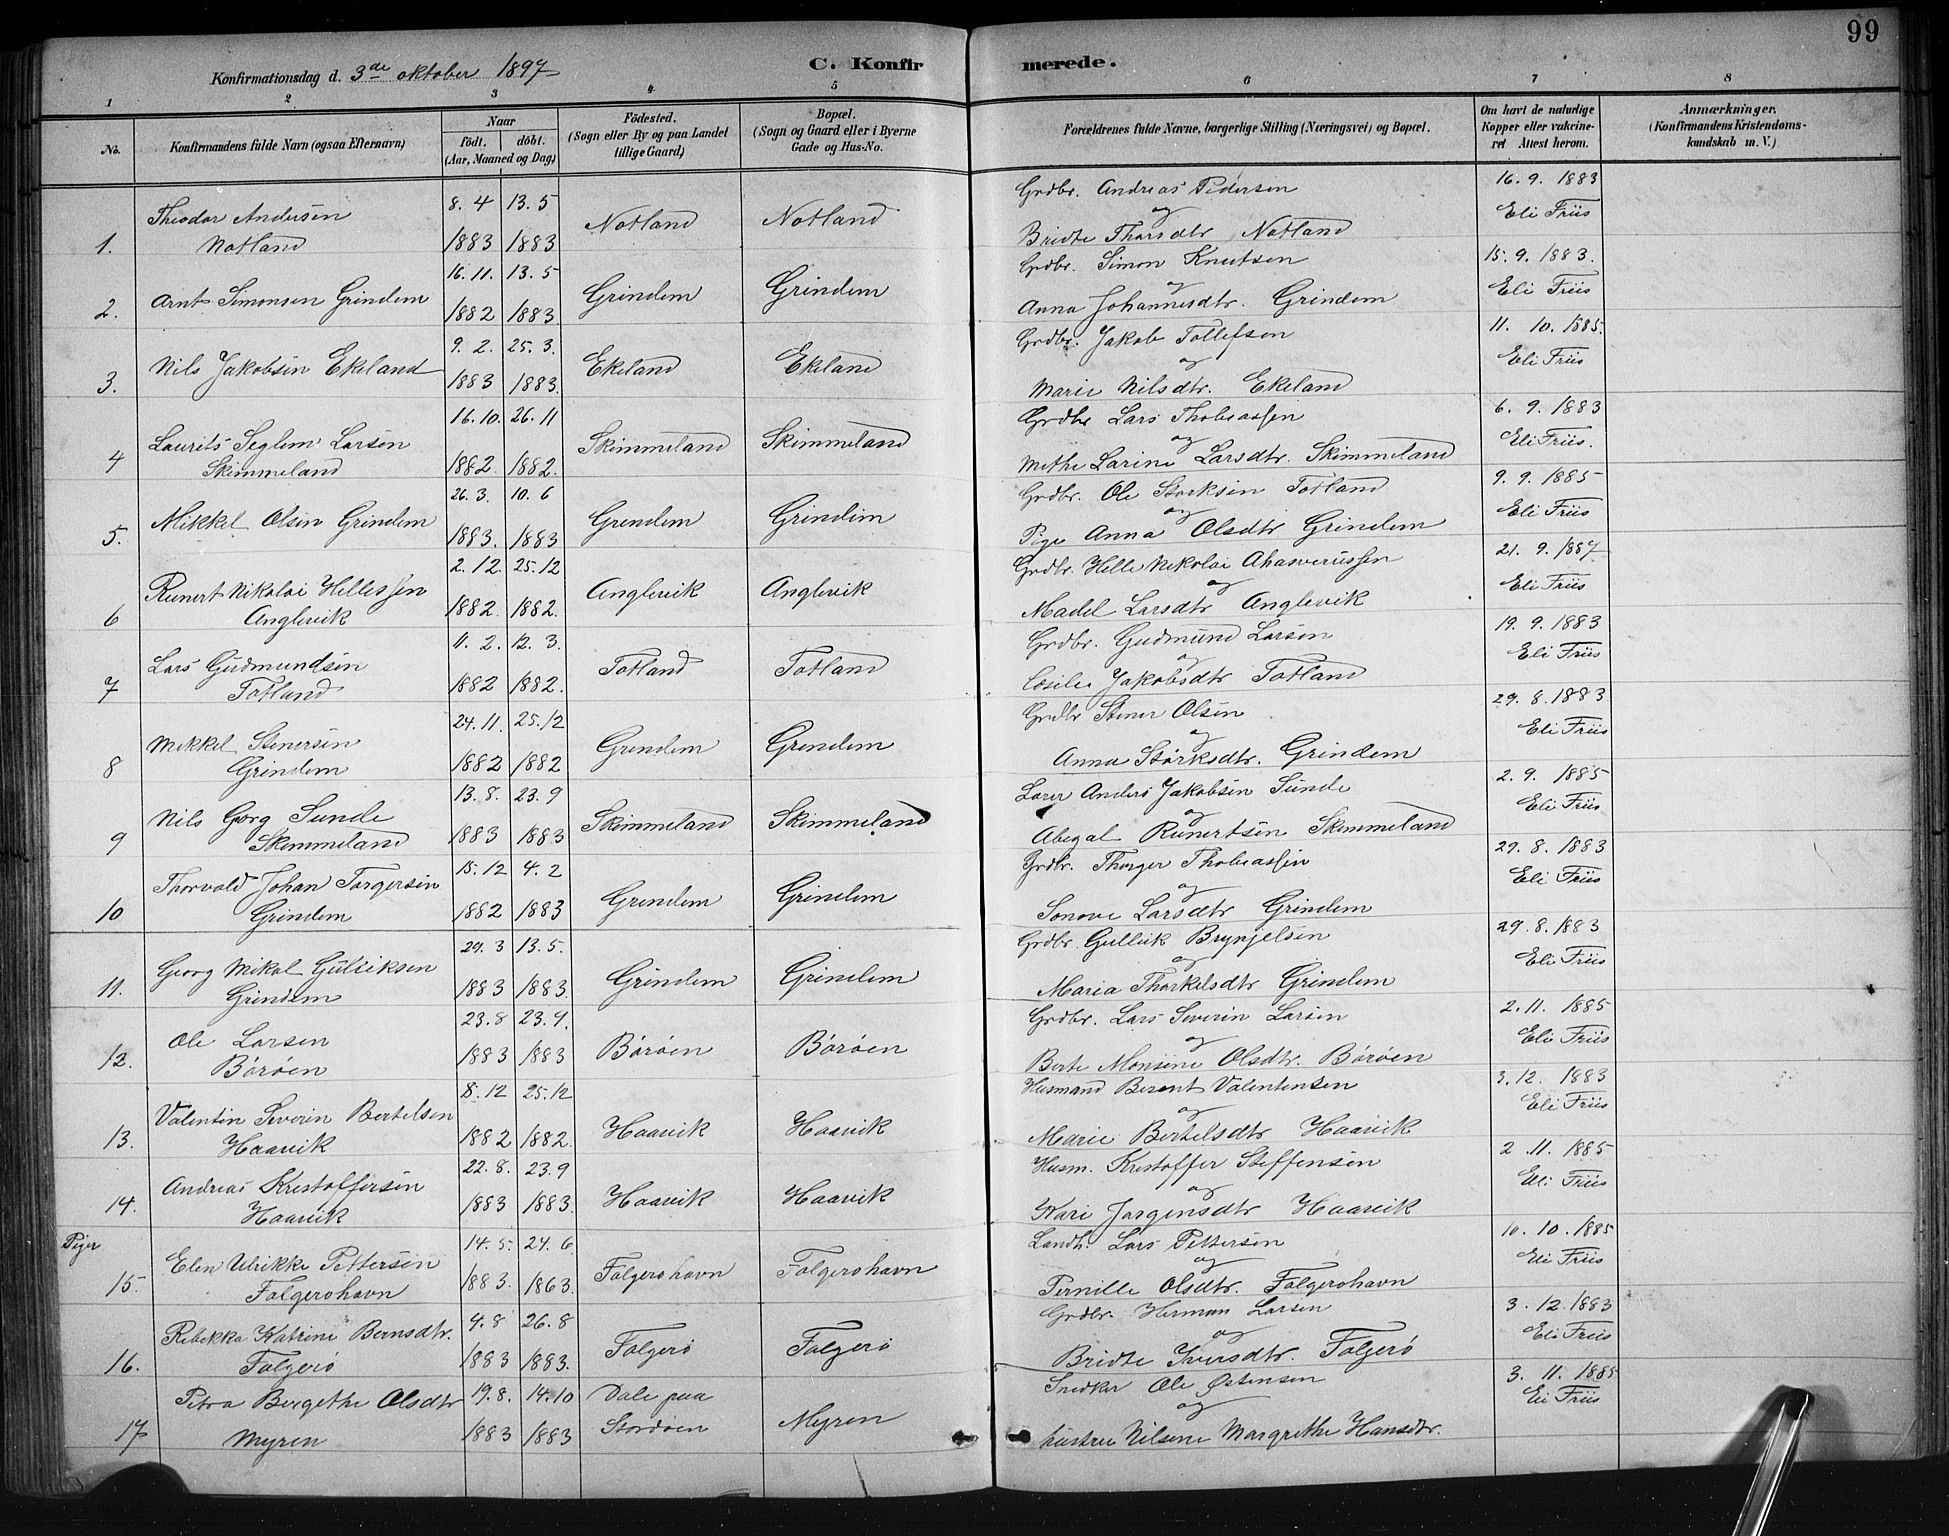 99
Konfirmationsdag d. 3de oktober 1897
C. Konfirmerede.
1 2 3 4 5 6 7 8
No.
Konfirmandens fulde Navn (ogsaa Efternavn)
Naar
født. døbt.
(Aar, Maaned og Dag)
Fødested.
(Sogn eller By og paa Landet
tillige Gaard)
Bopæl.
(Sogn og Gaard eller i Byerne
Gade og Hus-No.
Forældrenes fulde Navne, borgerlige Stilling (Næringsvei) og Bopæl.
Om havt de naturlige
Kopper eller vakcine-
ret Attest herom.
Anmærkninger,
(Konfirmandens Kristendoms-
kundskab m. V.)
1. Theodor Andersen 8. 4 13. 5 Notland Notland Grdbr. Andreas Pedersen 16. 9. 1883
Notland 1883 1883 og Bridte Thorsdtr Notland Eli Friis
2. Arnt Simonsen Grindem 16. 11. 13. 5 Grindem Grindem Grdbr. Simon Knutsen 15. 9. 1883.
1882 1883 og Anna Johannesdtr. Grindem Eli Friis
3. Nils Jakobsen Ekeland 9. 2. 25. 3. Ekeland Ekeland Grdbr. Jakob Tollefsen 11. 10. 1885.
1883 1883. og Marie Nilsdtr. Ekeland Eli Friis
4 Laurits Seglem Larsen 16. 10. 26. 11 Skimmeland Skimmeland Grdbr Lars Thobiassen 6. 9. 1883
Skimmeland 1882. 1882. og Methe Larine Larsdtr. Skimmeland Eli Friis.
5. Mikkel Olsen Grindem 26. 3. 10. 6 Grendem Grindem Grdbr. Ole Storksen Totland 9. 9. 1885
1883. 1883 og Pige Anna Olsdtr Grindem Eli Friis
6 Runert Nikolai Hellessen 2. 12. 25. 12 Anglevik Anglevik Grdbr. Helle Nikolai Ahasverussen 21. 9. 1887
Anglevik 1882. 1882. og Madel Larsdtr Anglevik Eli Friis
7 Lars Gudmundsen 11. 2. 12. 3. Totland Totland Grdbr. Gudmund Larsen 19. 9. 1883
Totland 1882 1882. og Cesilie Jakobsdtr Totland Eli Friis
8 Mikkel Stenersen 24. 11. 25. 12 Grendem Grendem Grdbr Stener Olsen 29. 8. 1883
Grindem 1882 1882 og Anna Størksdtr. Grindem Eli Friis
9 Nils Georg Sunde 13. 8. 23. 9 Skimmeland Skimmeland Lærer Anders Jakobsen Sunde 2. 9. 1885
Skimmeland 1883 1883 og Abegal Runertsen Skimmeland Eli Friis
10 Thorvald Johan Torgersen 15. 12 4. 2 Grendem Grindem Grdbr. Thorger Thobiassen 29. 8. 1883
Grindem 1882 1883 og Sonove Larsdtr Grindem Eli Friis
11. Georg Mikal Gulleksen 29. 3 13. 5. Grindem Grindem Grdbr. Gullik Brynjelsen 29. 8. 1883
Grindem 1883 1883. og Maria Thorkelsdtr Grindem Eli Friis
12. Ole Larsen 23. 8 23. 9. Børøen Børøen Grdbr. Lars Severin Larsen 2. 11. 1885
Børøen 1883 1883 og Berte Monsine Olsdtr. Børøen Eli Friis
13. Valentin Severin Bertelsen 8. 12 25. 12 Haavik Haavik Husmand Berent Valentinsen 3. 12. 1883
Haavik 1882 1882. og Marie Bertelsdtr Haavik Eli Friis
14. Andreas Kristoffersen 22. 8. 23. 9 Haavik Haavik Husm. Kristoffer Steffensen 2. 11. 1885
Haavik 1883 1883. og Kari Jørgensdtr Haavik Eli Friis
Piger
15. Elen Ulrikke Pettersen 14. 5. 24. 6. Folgerohavn Folgerohavn Landh. Lars Pettersen 10. 10. 1885
Folgerohavn 1883. 1863. og Pernille Olsdtr. Folgerohavn Eli Friis
16. Rebekka Katrine Bernsdtr. 4. 8 26. 8 Folgerø Folgerø Grdbr. Herman Larsen 3. 12. 1883
Folgerø 1883 1883. og Bridte Iversdtr. Folgerø Eli Friis
17 Petra Bergethe Olsdtr 19. 8. 14. 10 Dale paa Myren Snedker Ole Østensen 3. 11. 1885
Myren 1883 1883 Stordøen og hustru Nilsine Margrethe Hansdtr. Eli Friis